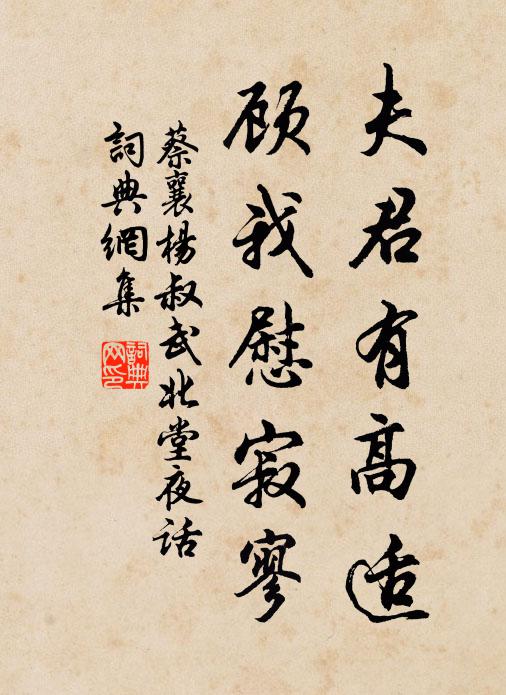 夫君有高适
顾我慰寂寥
蔡襄杨叔武北堂夜话
詞典網集
詞典网印